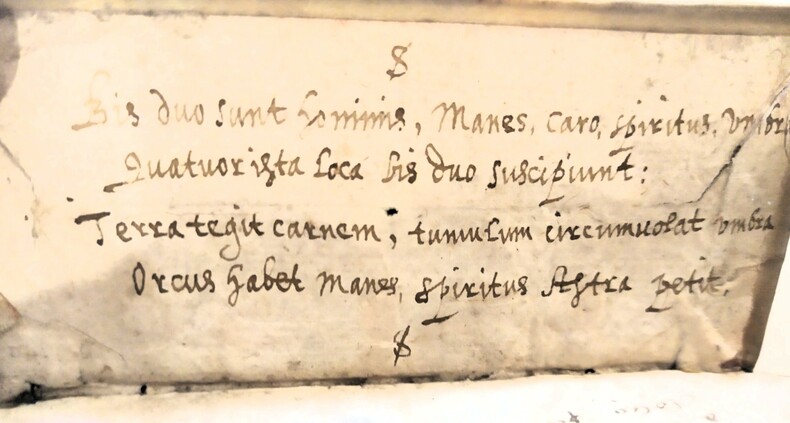 Bis duo sunt hominis, Manes, Caro, spiritus, Vmbra
Quatuor ista loca bis duo suscipiunt:
Terra tegit carnem, tumulum circumuolat vmbra
Orcus habet Manes, spiritus Astra petit.